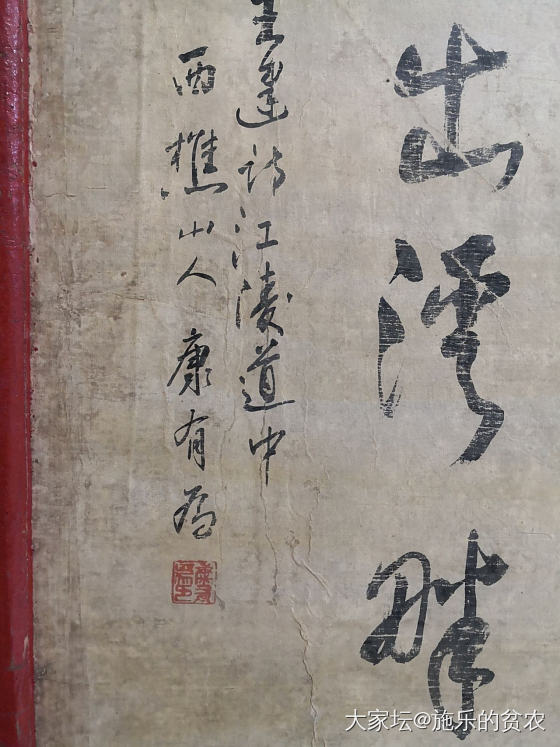 出溪畔
王建詩江陵道中
西樵山人康有為
大家坛@施乐的贫农